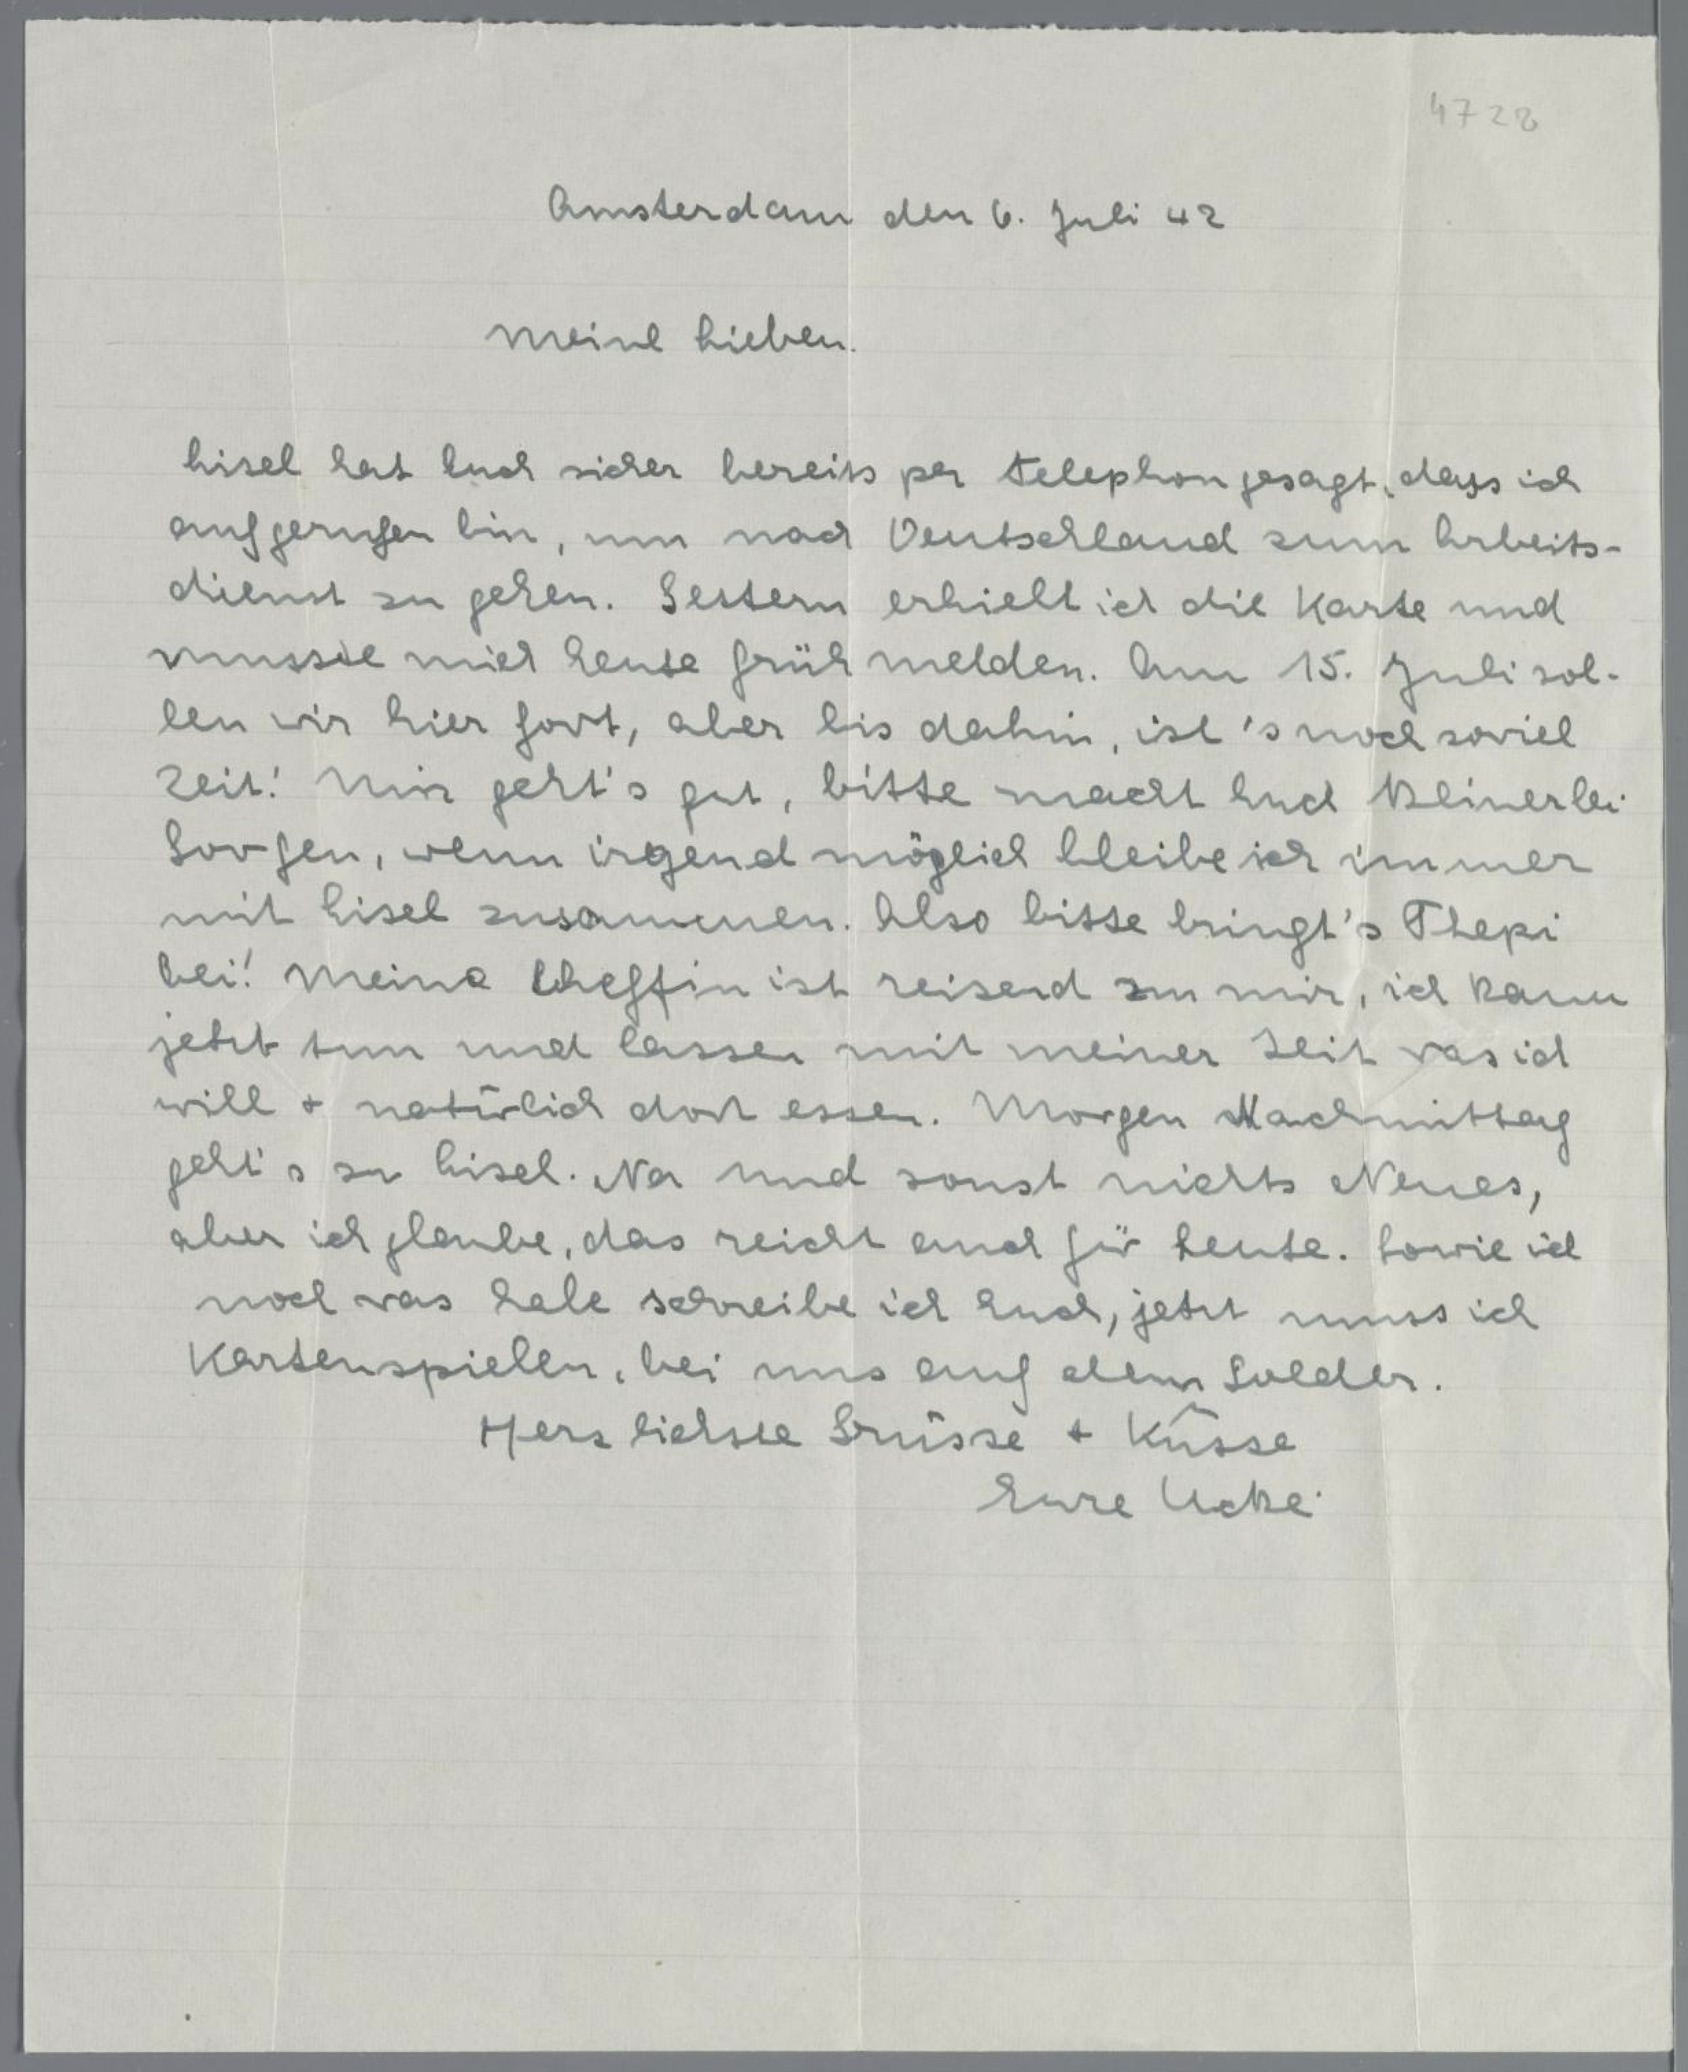 4728
Amsterdam den 6. Juli 42
Meine Lieben.
Lisel hat Euch sicher bereits per Telephon gesagt, dass ich
aufgerufen bin, um nach Deutschland zum Arbeits-
dienst zu gehen. Gestern erhielt ich die Karte und
musste mich heute früh melden. Am 15. Juli sol-
len wir hier fort, aber bis dahin, ist's noch soviel
Zeit! Mir geht's gut, bitte macht Euch keinerlei
Sorgen, wenn irgend möglich bleibe ich immer
mit Lisel zusammen. Also bitte bringt's Thepi
bei! Meine Cheffin ist reizend zu mir, ich kann
jetzt tun und lassen mit meiner Zeit was ich
will + natürlich dort essen. Morgen Nachmittag
geht's zu Lisel. Na und sonst nichts Neues,
aber ich glaube, das reicht auch für heute. Sowie ich
noch was habe schreibe ich Euch, jetzt muss ich
Kartenspielen, bei uns auf dem Solder.
Herzlichste Grüsse + Küsse
Eure Ucke